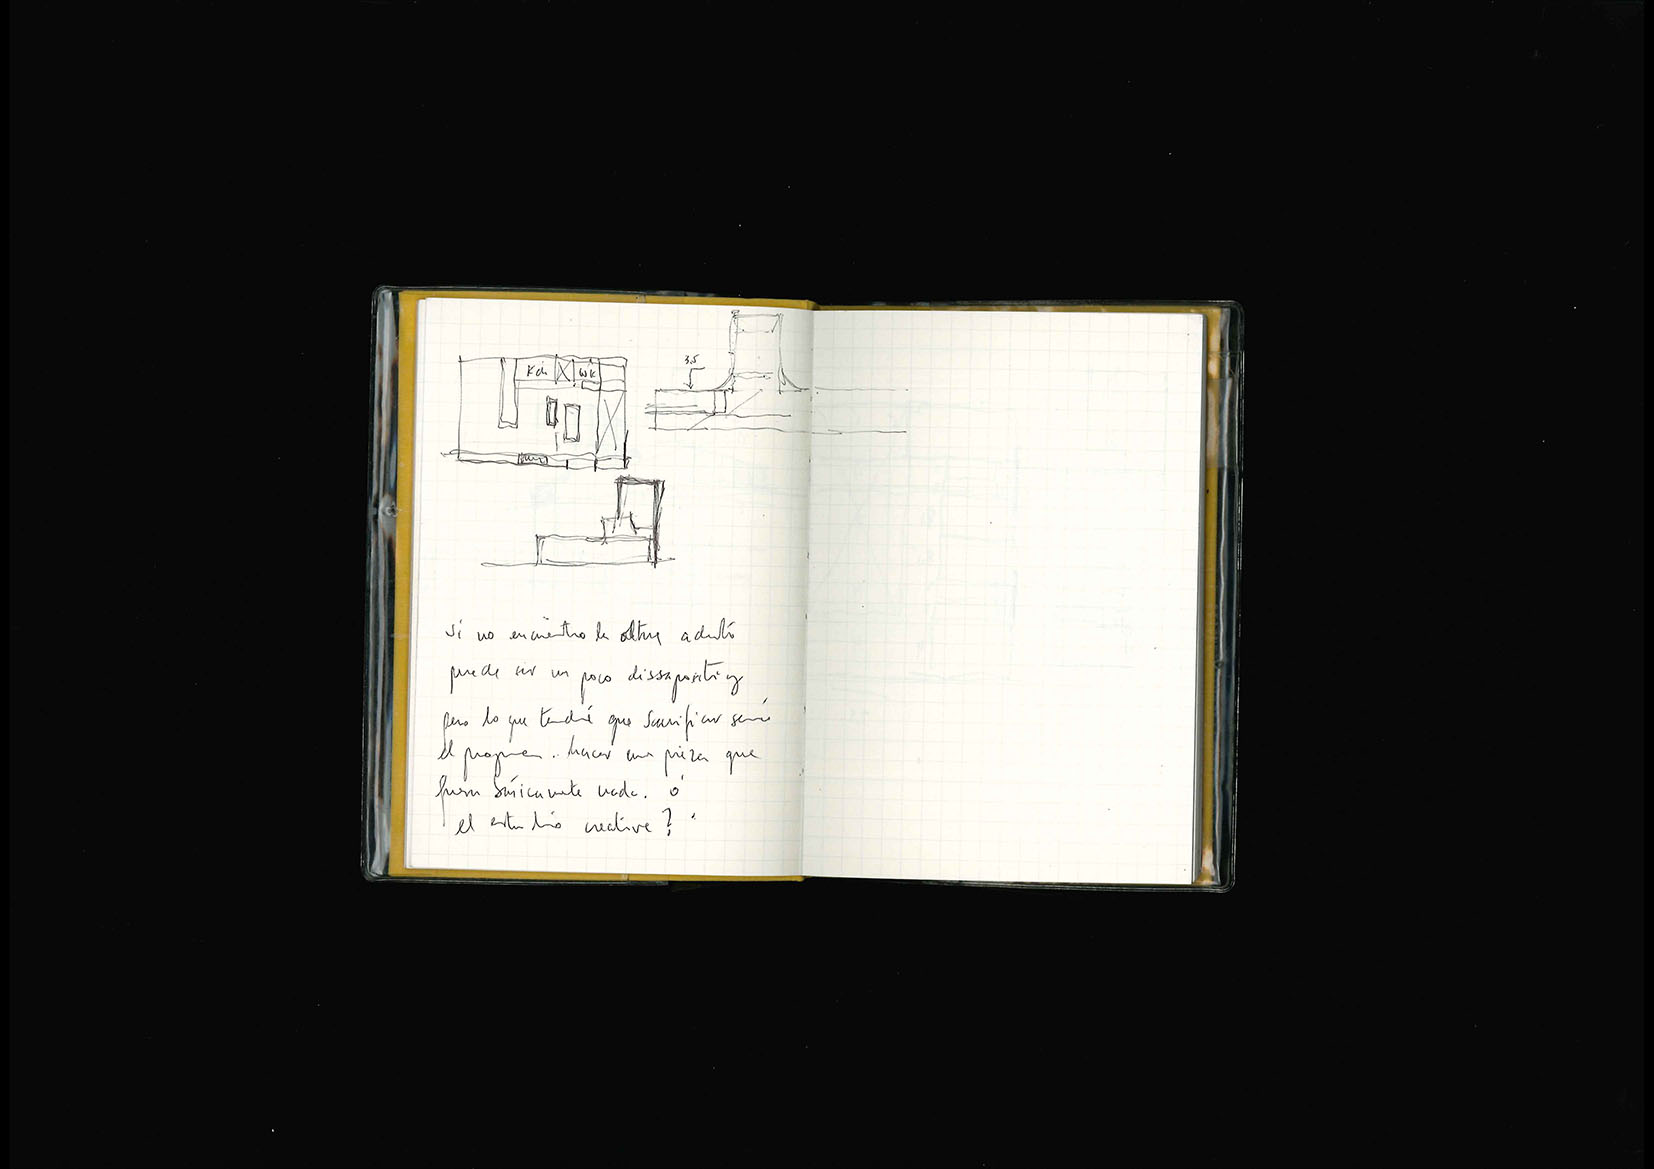 Kch
WK
3.5
si no encuentro la altura
puede ser un poco
pero lo que tendré que sacrificar será
el programa. hacer una pieza que
fuera únicamente nada. ó
el estudio creative?